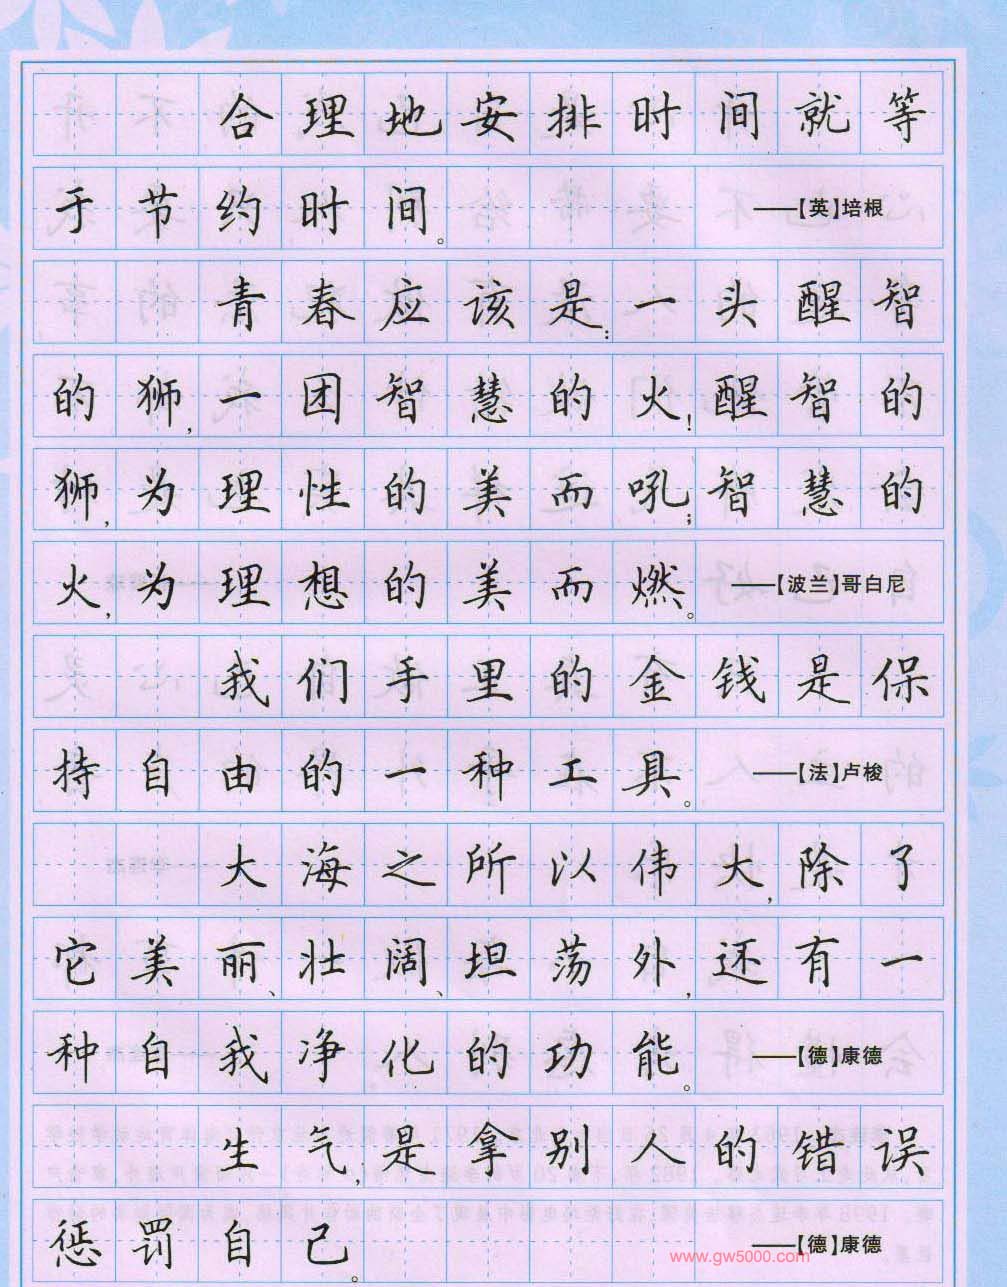 合理地安排时间就等
于节约时间。 ——【英】培根
青春应该是:一头醒智
的狮,一团智慧的火!醒智的
狮,为理性的美而吼;智慧的
火,为理想的美而燃。 ——【波兰】哥白尼
我们手里的金钱是保
持自由的一种工具。 ——【法】卢梭
大海之所以伟大,除了
它美丽、壮阔、坦荡外,还有一
种自我净化的功能。 ——【德】康德
生气,是拿别人的错误
惩罚自己。 ——【德】康德
www.gw5000.com